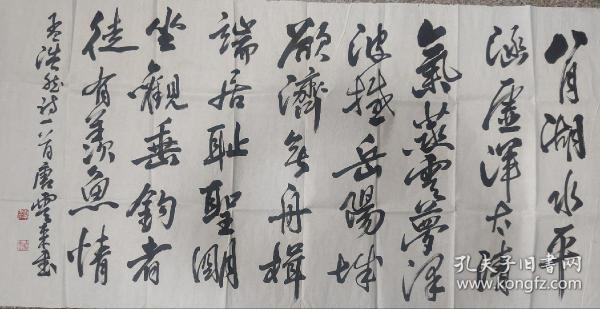 八月湖水平
涵虚浑太清
氣蒸雲夢澤
波撼岳陽城
欲濟無舟楫
端居耻聖明
坐觀垂釣者
徒有羡魚情
孟浩然詩一首唐雲來書
孔夫子旧书网
www.kongfz.com